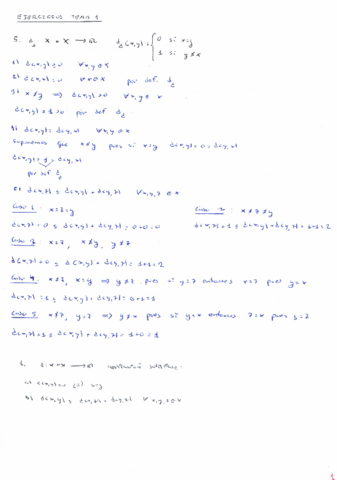 EJERCICIOS TEMA 1
5. d_Δ : X × X → ℝ d_Δ(x,y) = { 0 si x=y
1 si y≠x
1) d(x,y) ≥ 0 ∀x,y ∈ X
2) d(x,x) = 0 ∀x ∈ X por def. d_Δ
3) x ≠ y ⇒ d(x,y) > 0 ∀x,y ∈ X
d(x,y) = 1 > 0 por def d_Δ
4) d(x,y) = d(y,x) ∀x,y ∈ X
Suponemos que x≠y pues si x=y d(x,y) = 0 = d(y,x)
d(x,y) = 1 = d(y,x)
por def d_Δ
5) d(x,z) ≤ d(x,y) + d(y,z) ∀x,y,z ∈ X
Caso 1: x=z=y
d(x,z) = 0 ≤ d(x,y) + d(y,z) = 0+0=0
Caso 2: x≠z≠y
d(x,z) = 1 ≤ d(x,y) + d(y,z) = 1+1=2
Caso 3: x=z, x≠y, y≠z
d(x,z) = 0 ≤ d(x,y) + d(y,z) = 1+1=2
Caso 4: x≠z, x=y ⇒ y≠z pues si y=z entonces x=z pues y=x
d(x,z) = 1 ≤ d(x,y) + d(y,z) = 0+1=1
Caso 5: x≠z, y=z ⇒ y≠x pues si y=x entonces z=x pues y=z
d(x,z) = 1 ≤ d(x,y) + d(y,z) = 1+0=1
d: X × X → ℝ
a) d(x,y) = 0 ⇔ x=y
b) d(x,y) ≤ d(x,z) + d(y,z) ∀x,y,z ∈ X
1